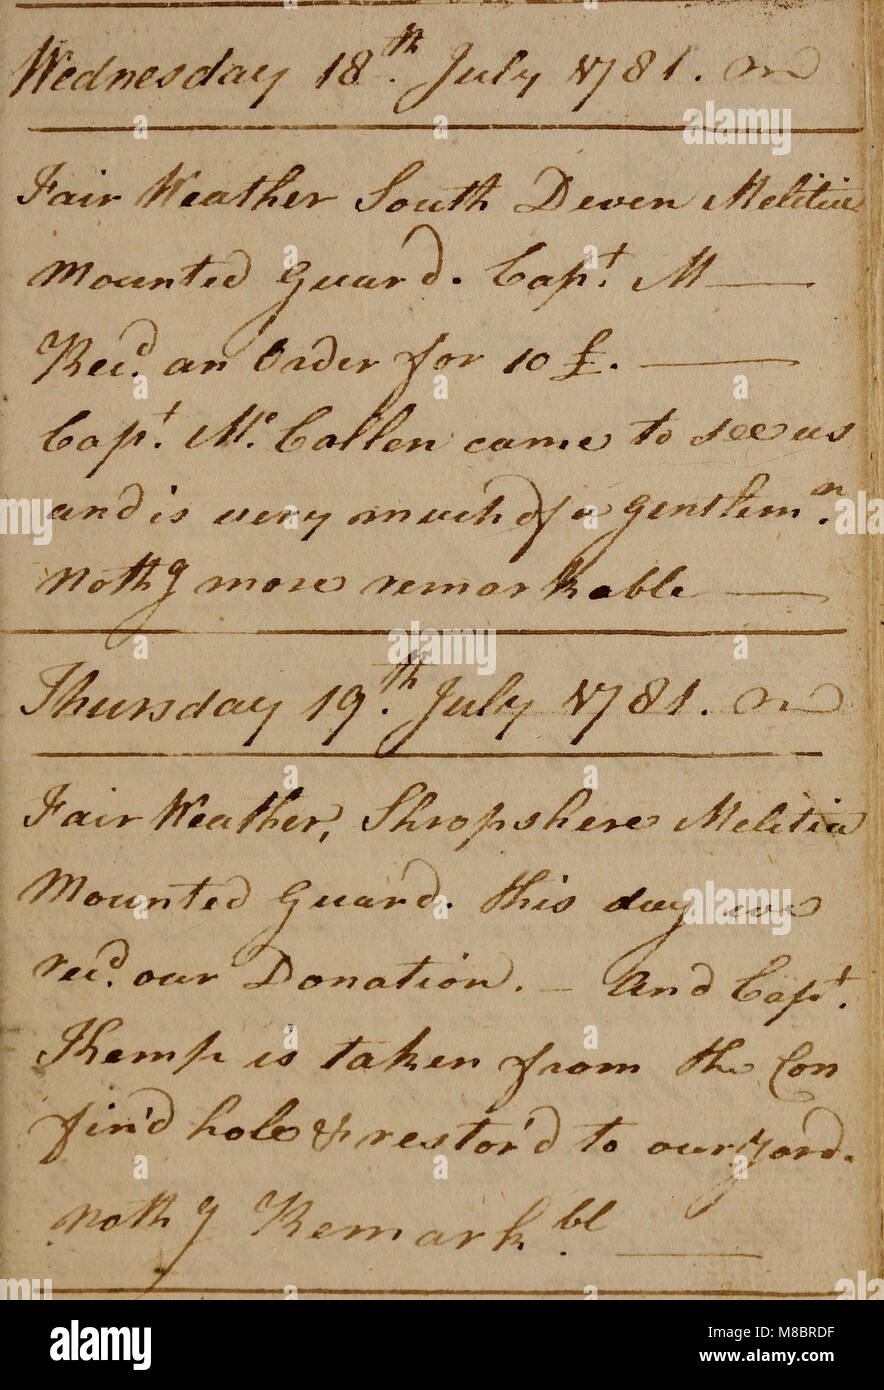 Wednesday 18th. July 1781.
Fair Weather South Deven Melitia
Mounted Guard. Capt. M
Recd. an Order for 10 £.
Capt. Mc. Collen came to see us
and is very much of a gentlemn.
nothg more remarkable
Thursday 19th. July 1781.
Fair Weather, Shropshere Melitia
Mounted Guard. this day we
recd. our Donation. - And Capt.
Themp is taken from the Con
fin'd hole & restor'd to our yard.
nothg Remarkbl
alamy
Image ID: M8BRDF
www.alamy.com